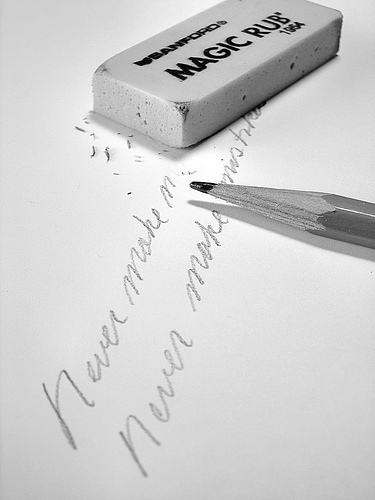 SANFORD®
MAGIC RUB®
1954
Never make m
Never make mistake